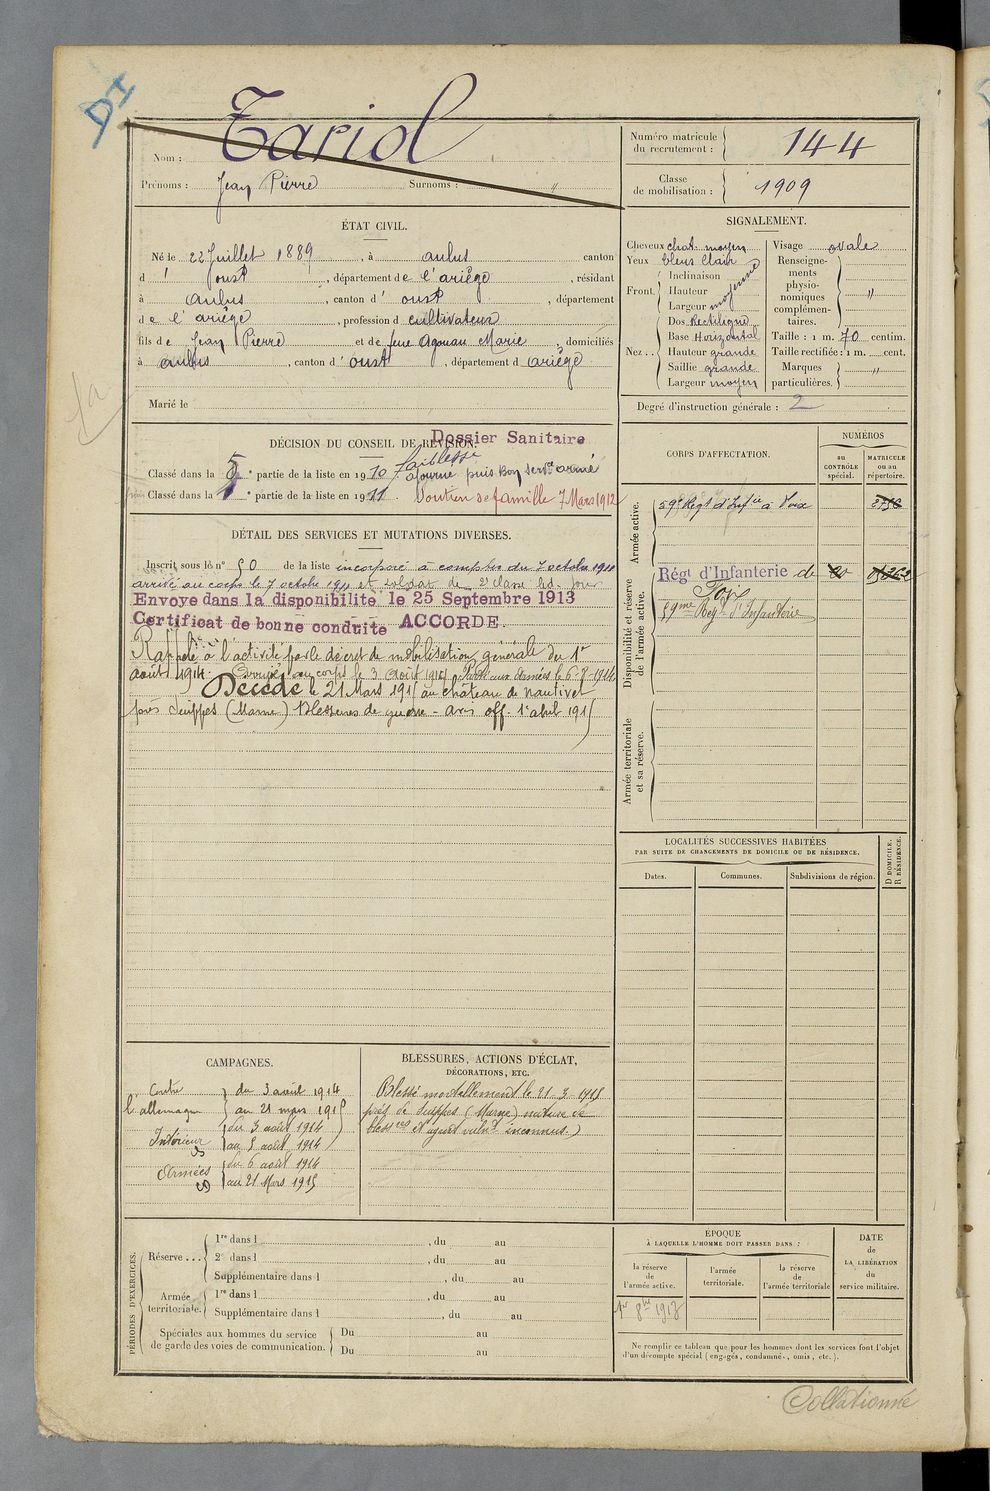 DI
Nom : Tariol
Prénoms : Jean Pierre Surnoms : "
Numéro matricule du recrutement : 144
Classe de mobilisation : 1909
ÉTAT CIVIL.
Né le 22 Juillet 1889, à aulus canton
d' oust, département de l'ariège, résidant
à aulus, canton d' oust, département
de l'ariège, profession de cultivateur
fils de Jean Pierre et de feue Agouau Marie, domiciliés
à aulus, canton d' oust, département d' ariège
Marié le
SIGNALEMENT.
Cheveux chat. moyen
Yeux bleus clair
Front. Inclinaison
Hauteur
Largeur
moyenne
Nez.. Dos Rectiligne
Base Horizontal
Hauteur grande
Saillie grande
Largeur moyen
Visage ovale
Renseignements physionomiques complémentaires. "
Taille : 1 m. 70 centim.
Taille rectifiée : 1 m. cent.
Marques particulières. "
Degré d'instruction générale : 2
DÉCISION DU CONSEIL DE RÉVISION.
Dossier Sanitaire
Classé dans la 5e partie de la liste en 1910 faiblesse ajourné puis Bon servce armé
Classé dans la 1e partie de la liste en 1911. Soutien de famille 7 Mars 1912
DÉTAIL DES SERVICES ET MUTATIONS DIVERSES.
Inscrit sous le n° 50 de la liste incorporé à compter du 7 octobre 1911
arrivé au corps le 7 octobre 1911 et soldat de 2e classe led. Jour
Envoyé dans la disponibilité le 25 Septembre 1913
Certificat de bonne conduite ACCORDÉ.
Rappelé à l'activité par le décret de mobilisation générale du 1er
août 1914. Arrivé au corps le 3 août 1914. Parti aux armées le
Décédé le 21 Mars 1915 au château de nautivet
près Suippes (Marne) Blessures de guerre - avis off. 1er abril 1915
CORPS D'AFFECTATION.
NUMÉROS
au CONTRÔLE spécial.
MATRICULE ou au répertoire.
Armée active.
59e Régt d'Infie à Foix
Disponibilité et réserve de l'armée active.
Régt d'Infanterie de
Foix
59me Régt d'Infanterie
Armée territoriale et sa réserve.
LOCALITÉS SUCCESSIVES HABITÉES
PAR SUITE DE CHANGEMENTS DE DOMICILE OU DE RÉSIDENCE.
Dates. Communes. Subdivisions de région. D DOMICILE. R RÉSIDENCE.
CAMPAGNES.
Contre l'allemagne
du 3 août 1914
au 21 mars 1915
Intérieur
du 3 août 1914
au 5 août 1914
Armées
du 6 août 1914
au 21 Mars 1915
BLESSURES, ACTIONS D'ÉCLAT,
DÉCORATIONS, ETC.
Blessé mortellement le 21-3-1915
près de Suippes (Marne) nature de
blessres et agent vulnt inconnus.)
PÉRIODES D'EXERCICES.
Réserve... 1re dans l , du au
2e dans l , du au
Supplémentaire dans l , du au
Armée territoriale. 1re dans l , du au
Supplémentaire dans l , du au
Spéciales aux hommes du service de garde des voies de communication. Du au
Du au
ÉPOQUE
À LAQUELLE L'HOMME DOIT PASSER DANS :
la réserve de l'armée active.
l'armée territoriale.
la réserve de l'armée territoriale
DATE de LA LIBÉRATION du service militaire.
1er 8bre 1913
Ne remplir ce tableau que pour les hommes dont les services font l'objet
d'un décompte spécial (engagés, condamnés, omis, etc.).
Collationné